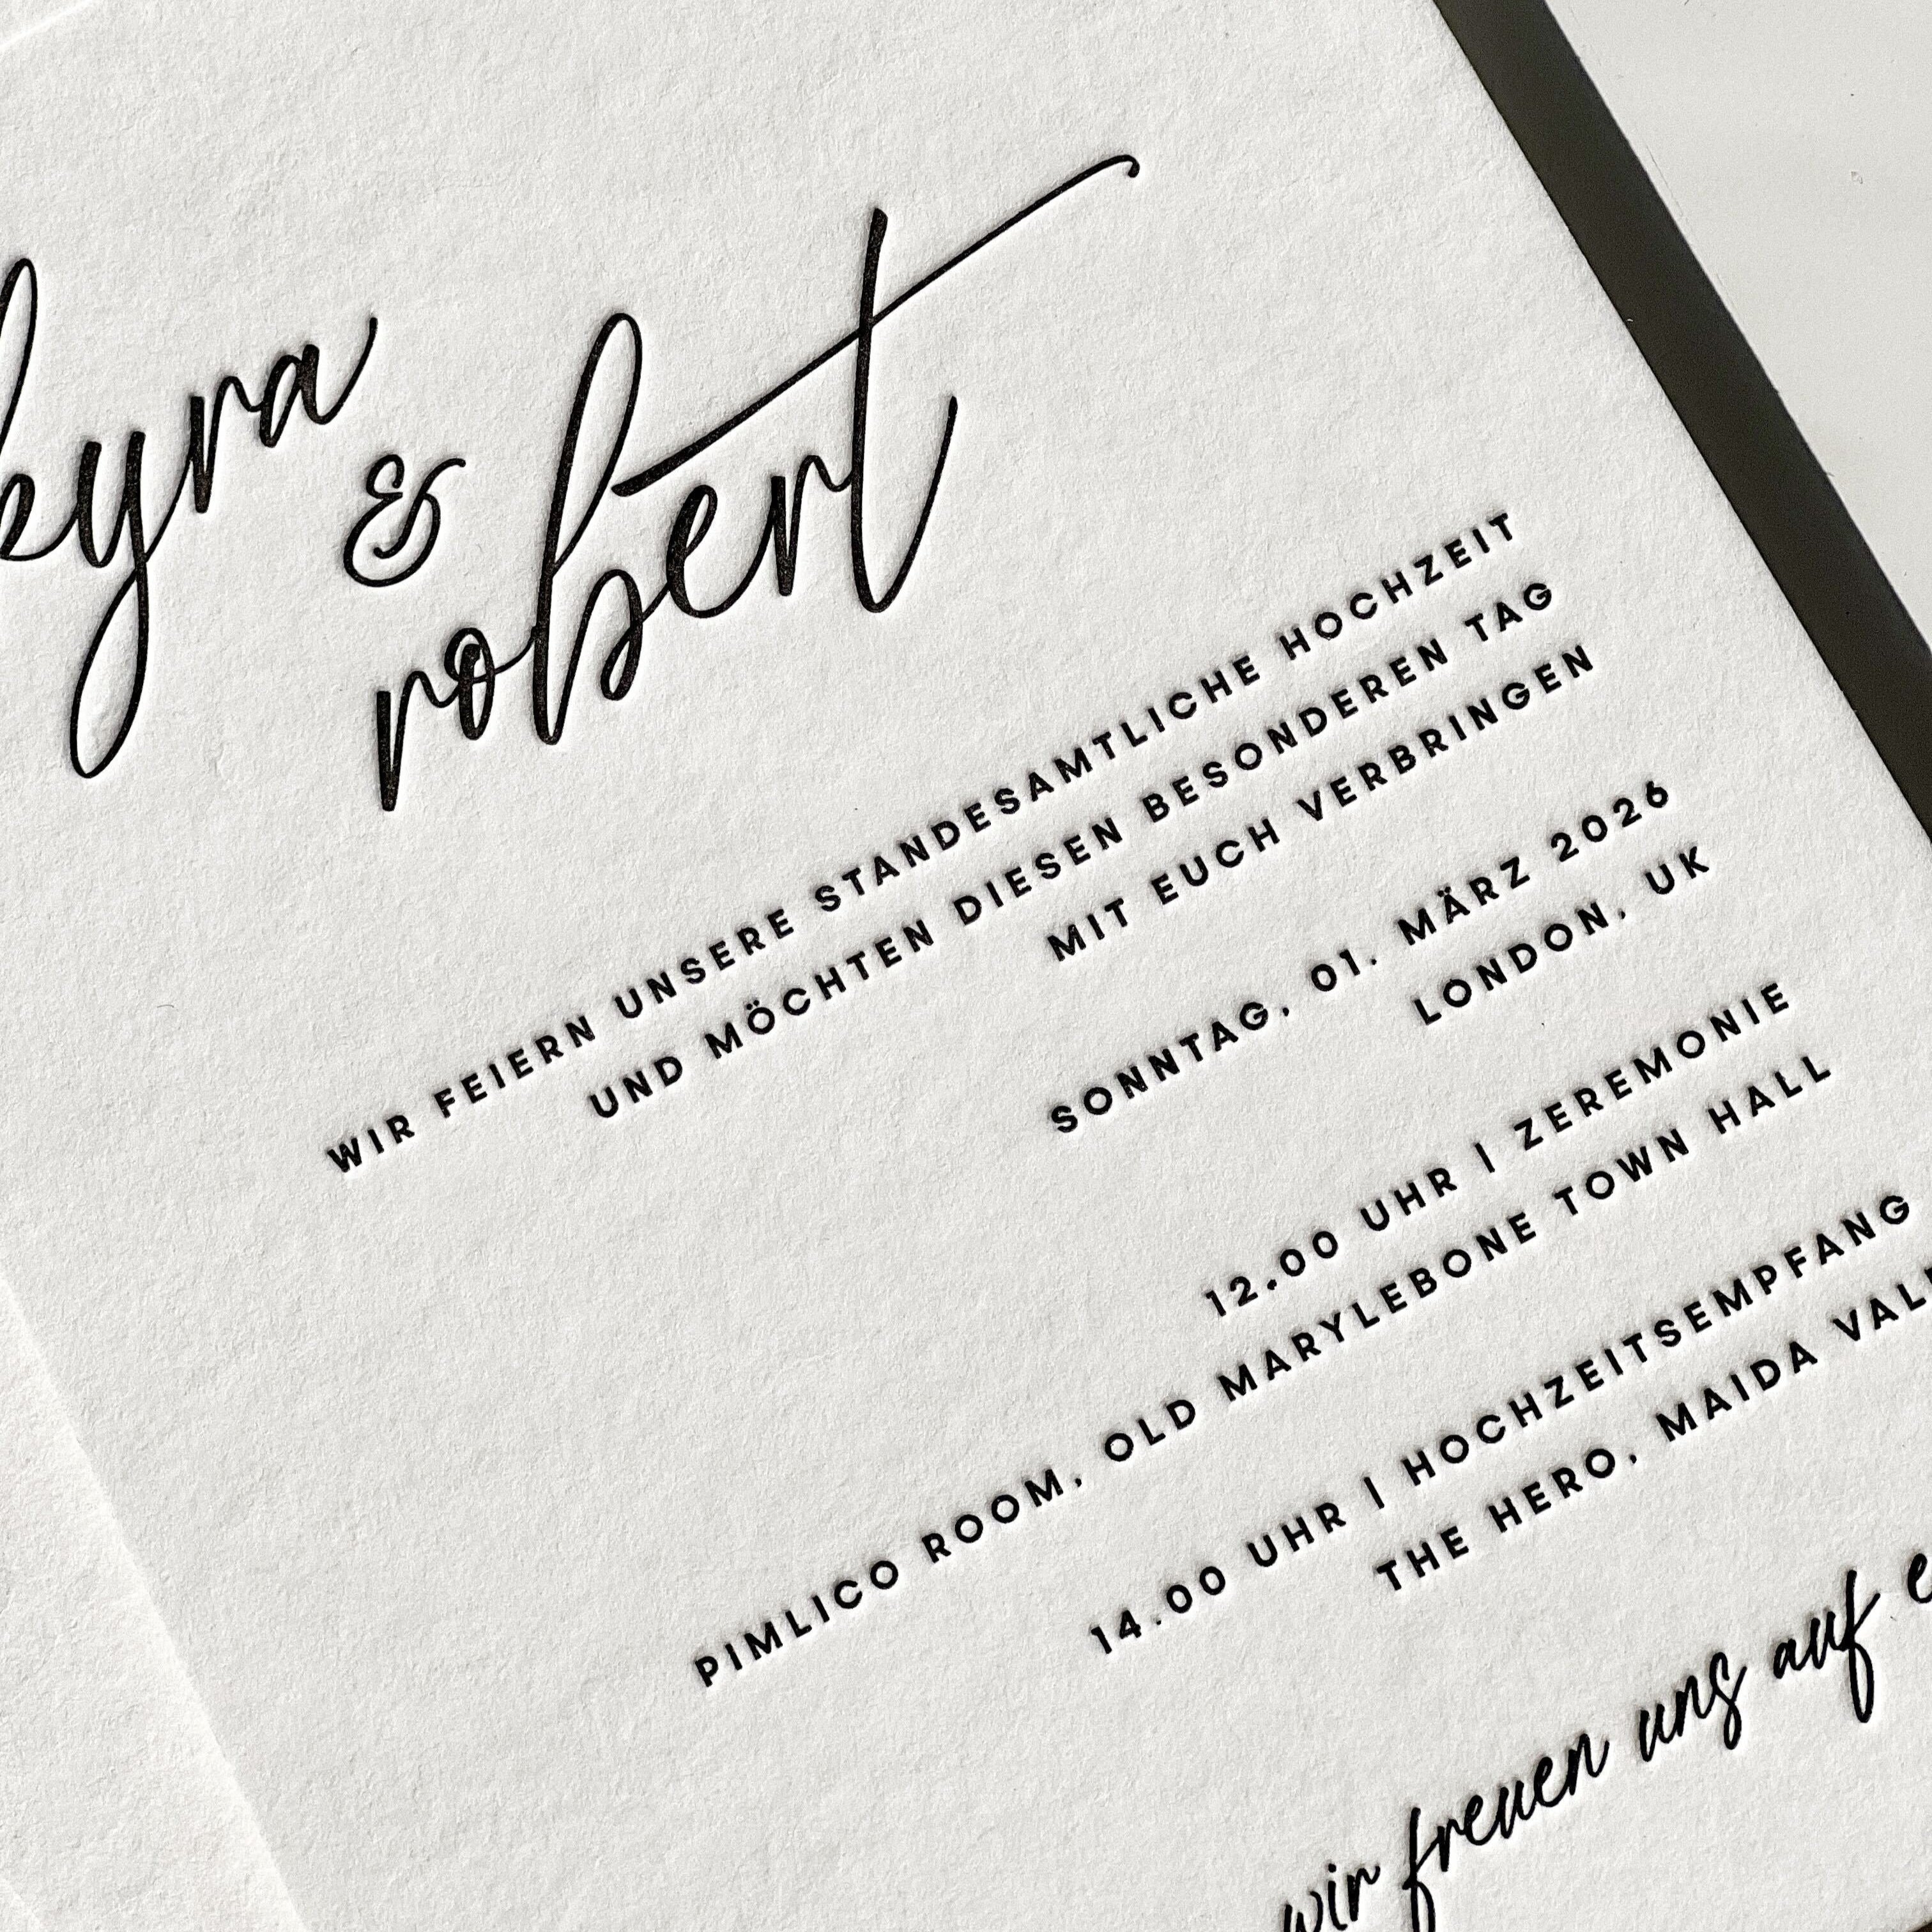 kyra
&
robert
WIR FEIERN UNSERE STANDESAMTLICHE HOCHZEIT
UND MÖCHTEN DIESEN BESONDEREN TAG
MIT EUCH VERBRINGEN
SONNTAG, 01. MÄRZ 2026
LONDON, UK
12.00 UHR | ZEREMONIE
PIMLICO ROOM, OLD MARYLEBONE TOWN HALL
14.00 UHR | HOCHZEITSEMPFANG
THE HERO, MAIDA
wir freuen uns auf